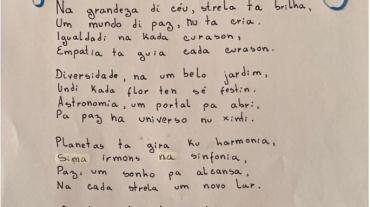 Na grandeza di céu, strela ta brilha,
Um mundo di paz, nu ta cria.
Igualdadi na kada curason,
Empatia ta guia cada curason.
Diversidade, na um belo jardim,
Undi kada flor ten sé festin.
Astronomia, um portal pa abri,
Pa paz na universo nu xinti.
Planetas ta gira ku harmonia,
Sima irmons na sinfonia,
Paz, um sonho pa alcansa,
Na cada strela um novo lar.